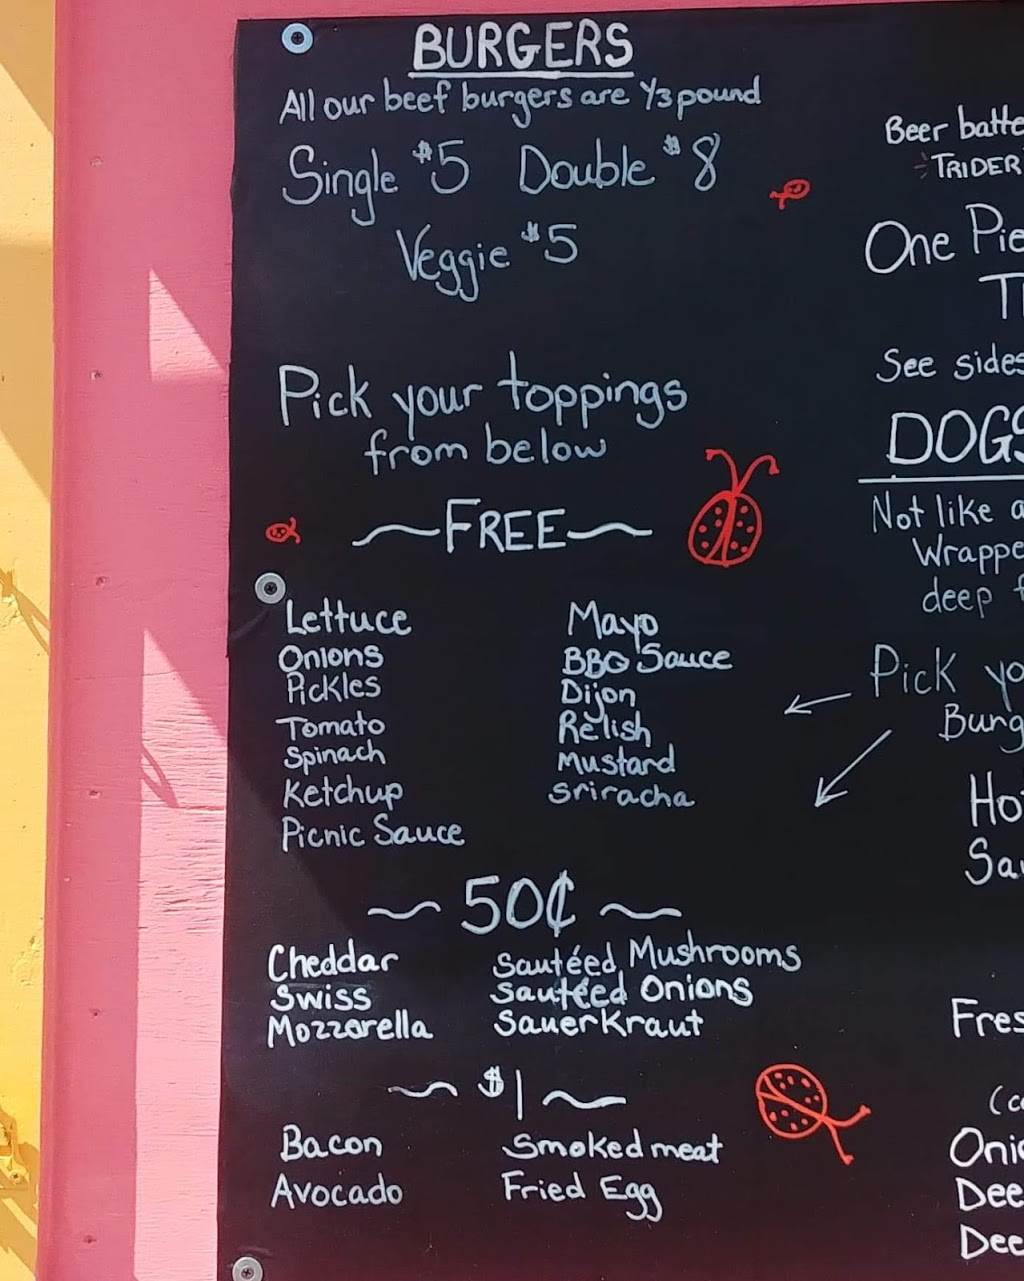 BURGERS
All our beef burgers are 1/3 pound
Single $5 Double $8
Veggie $5
Pick your toppings
from below
~FREE~
Lettuce
Onions
Pickles
Tomato
Spinach
Ketchup
Picnic Sauce
Mayo
BBQ Sauce
Dijon
Relish
Mustard
Sriracha
~ 50¢ ~
Cheddar
Swiss
Mozzarella
Sautéed Mushrooms
Sautéed Onions
Sauerkraut
~ $1 ~
Bacon
Avocado
Smoked meat
Fried Egg
Beer
One
See
DOGS
Not like
deep
Pick